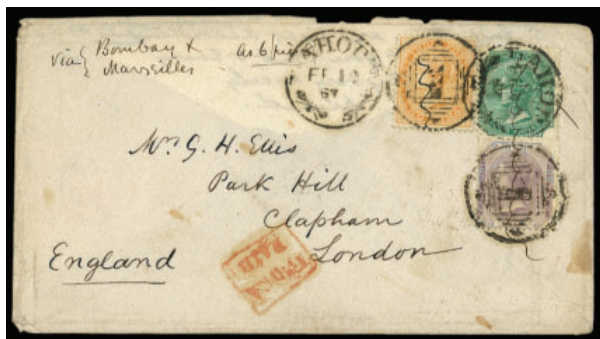 via { Bombay &
Marseilles
FE 19
67
Mr G. H. Ellis
Park Hill
Clapham
London
England
INDIA
PAID